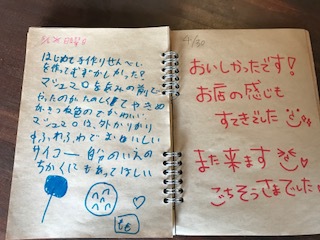 はじめて手作りせんべい
を作ってむずかしかった?
マシュマロを
のがたのしくてやきめ
がきつね色のとかわいい
マシュマロは、外かりかり
すふわふわでおいしい
サイコー 自分のいえの
ちかくにもあってほしい
4/30
おいしかったです!
お店の感じも
すてきでした
また来ます
ごちそうさまでした